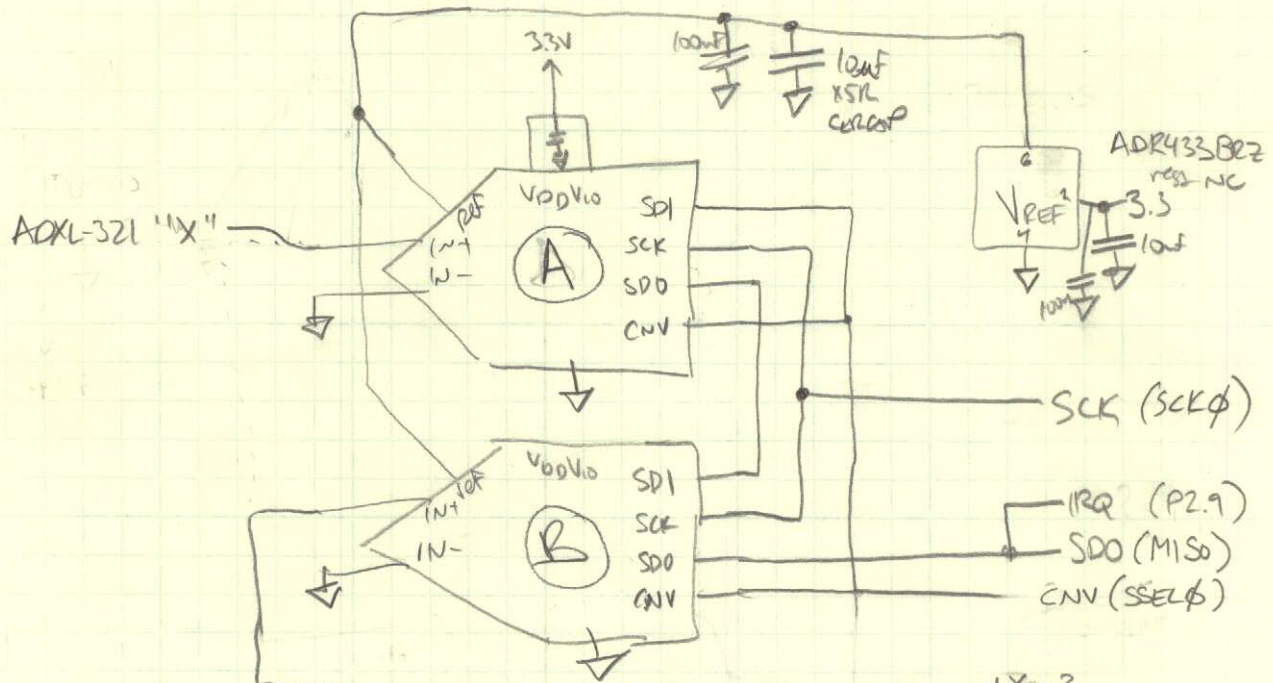 3.3V
100nF
10uF
X5R
CERCAP
ADR433BRZ
rest NC
6
VREF
2
4
3.3
10uF
100n
ADXL-321 "X"
VDD VIO
REF
IN+
IN-
A
SDI
SCK
SDO
CNV
SCK (SCKØ)
VDD VIO
VEF
IN+
IN-
B
SDI
SCK
SDO
CNV
IRQ (P2.9)
SDO (MISO)
CNV (SSELØ)